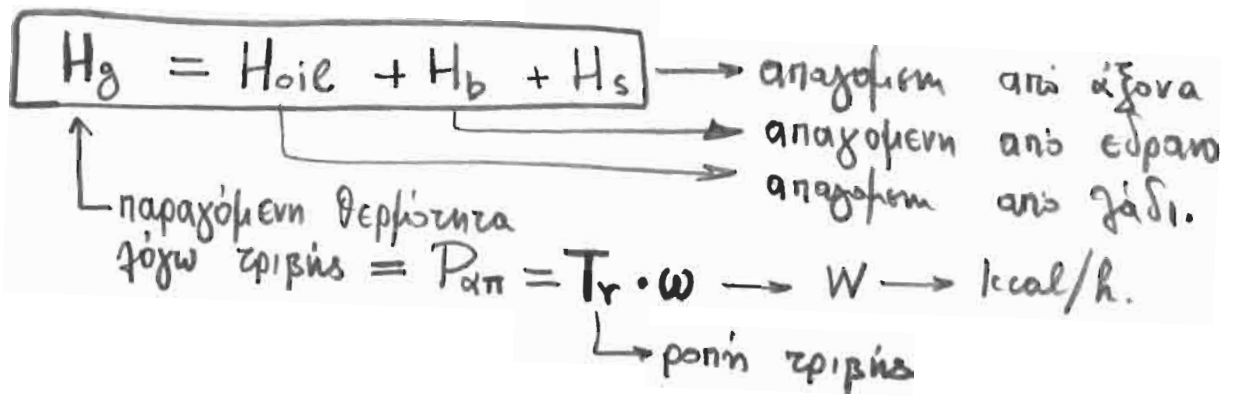 Hg = Hoil + Hb + Hs → απαγόμενη από άξονα
απαγομενη από εδρανο
απαγόμενη από λάδι.
παραγόμενη θερμότητα
λόγω τριβής = Pαπ = Tr · ω → W → kcal/h.
ροπή τριβής